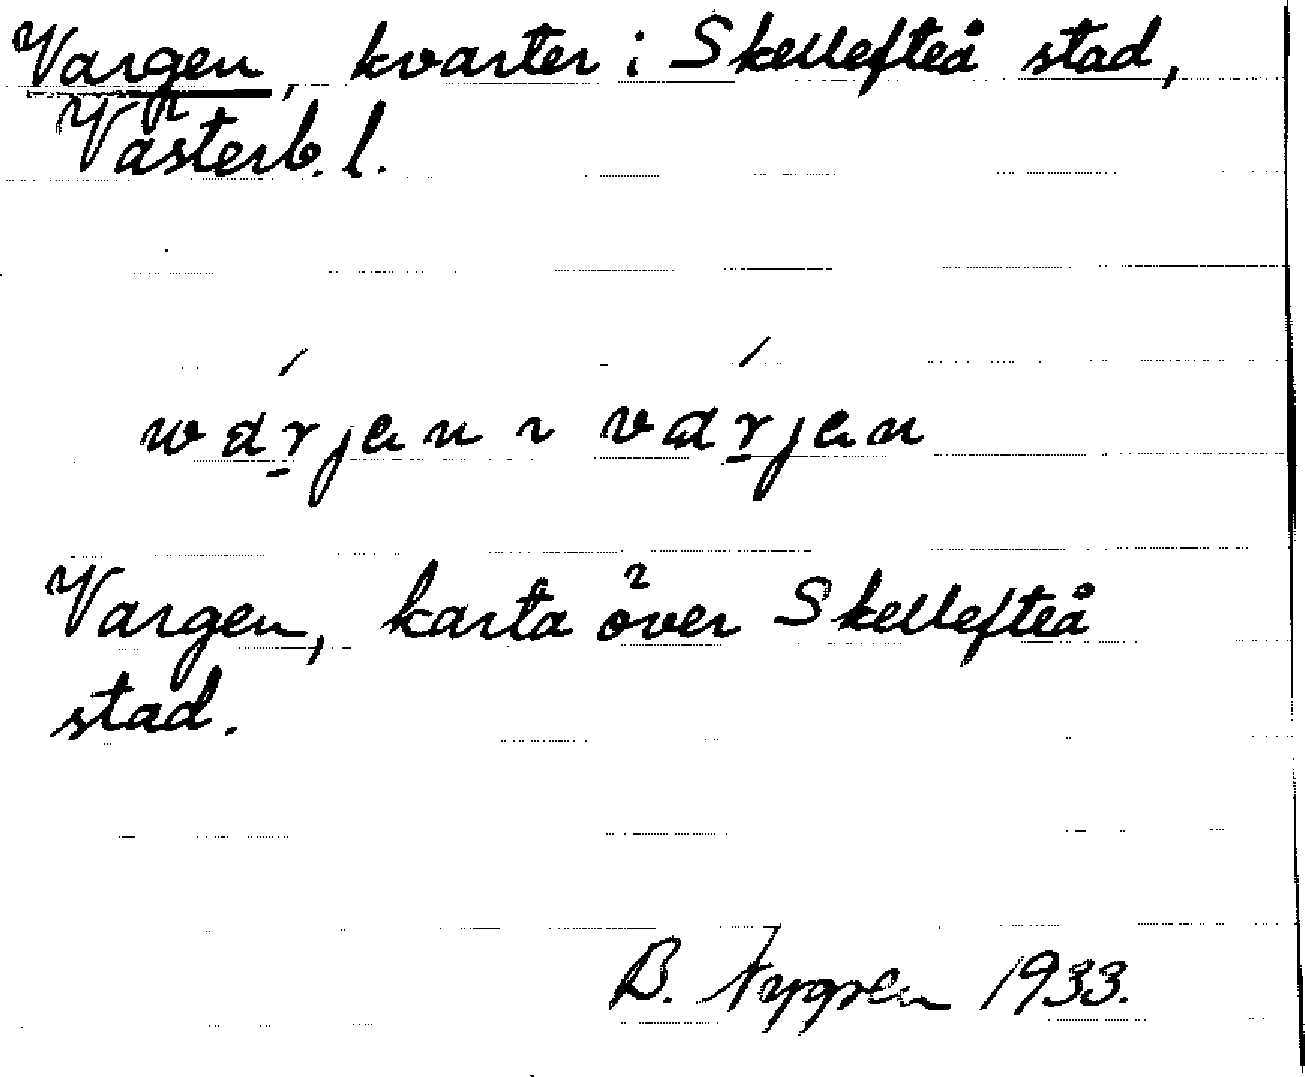 Vargen, kvarter i Skellefteå stad,
Västerb. l.
wárjen ~ várjen
Vargen, karta över Skellefteå
stad.
B. Nygren 1933.